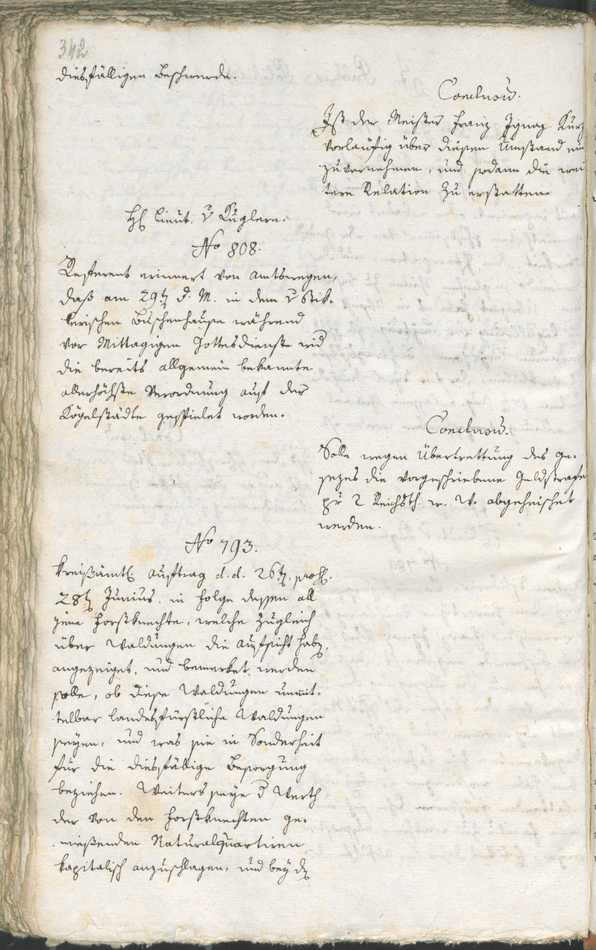 342
diesfälligen Beschwerde.
Conclusū.
Ist der Meister Franz Ignaz Kurz
vorläufig über diesen Umstand
zuvernehmen, und sodann die wei
tere Relation zu erstatten
H Lieut. v Kuglern.
No 808.
Referent erinnert von Amtswegen,
daß am 29t d. M. in dem v
kerischen während
vor Mittagigen Gottesdienste wid
die bereits allgemein bekannte
allerhöchste Verordnung auf der
Kögelstädte gespielet worden.
Conclusū.
Solle wegen Übertrettung des ge-
sezes die vorgeschriebene Geldstrafe
pr 2 Reichsth. w. W. abgeheischet
werden.
No 793.
Kreißämtl Auftrag d. d. 26t. pros.
28t Junius. in Folge dessen all
jene Forstknechte, welche zugleich
über Waldungen die Aufsicht habn,
angezeiget, und bemerket werden
solle, ob diese Waldungen unmit-
telbar landesfürstliche Waldungen
seyen, und was sie in Sonderheit
für die diesfällige Besorgung
beziehen. Weiters seye d Werth
der von den Forstknechten ge-
niessenden Naturalquartiren
kapitalisch anzuschlagen, und bey d